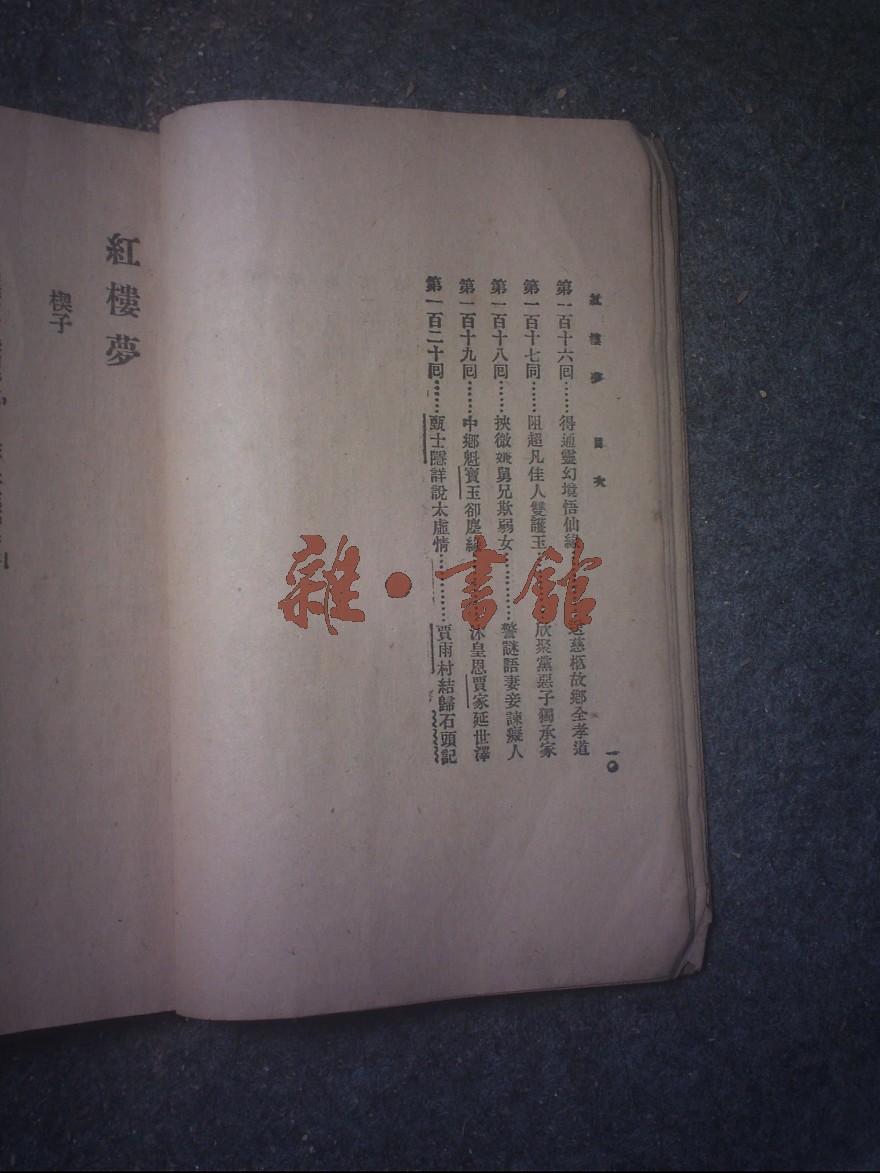 紅樓夢 目次
一〇
第一百十六回……得通靈幻境悟仙緣 慈柩故鄉全孝道
第一百十七同……阻超凡佳人雙護玉 欣聚黨惡子獨承家
第一百十八回……挾微嫌舅兄欺弱女…………警謎語妻妾諫癡人
第一百十九回……中鄉魁寶玉卻塵緣 沐皇恩賈家延世澤
第一百二十回……甄士隱詳說太虛情…………賈雨村結歸石頭記
紅樓夢
楔子
雜·書館